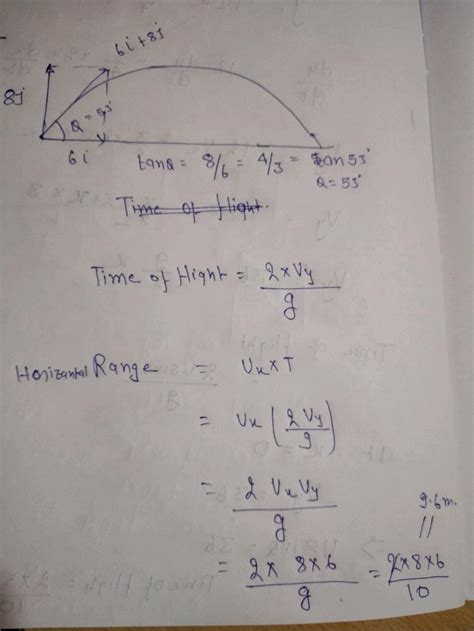 6i+8j
8j
Q = 53°
6i
tanQ = 8/6 = 4/3 = tan 53°
Q = 53°
Time of flight.
Time of flight = 2×Vy/g
Horizantal Range = Ux×T
= Ux (2Vy/g)
= 2 UxVy/g
9.6m.
= 2× 8×6/g = 2×8×6/10